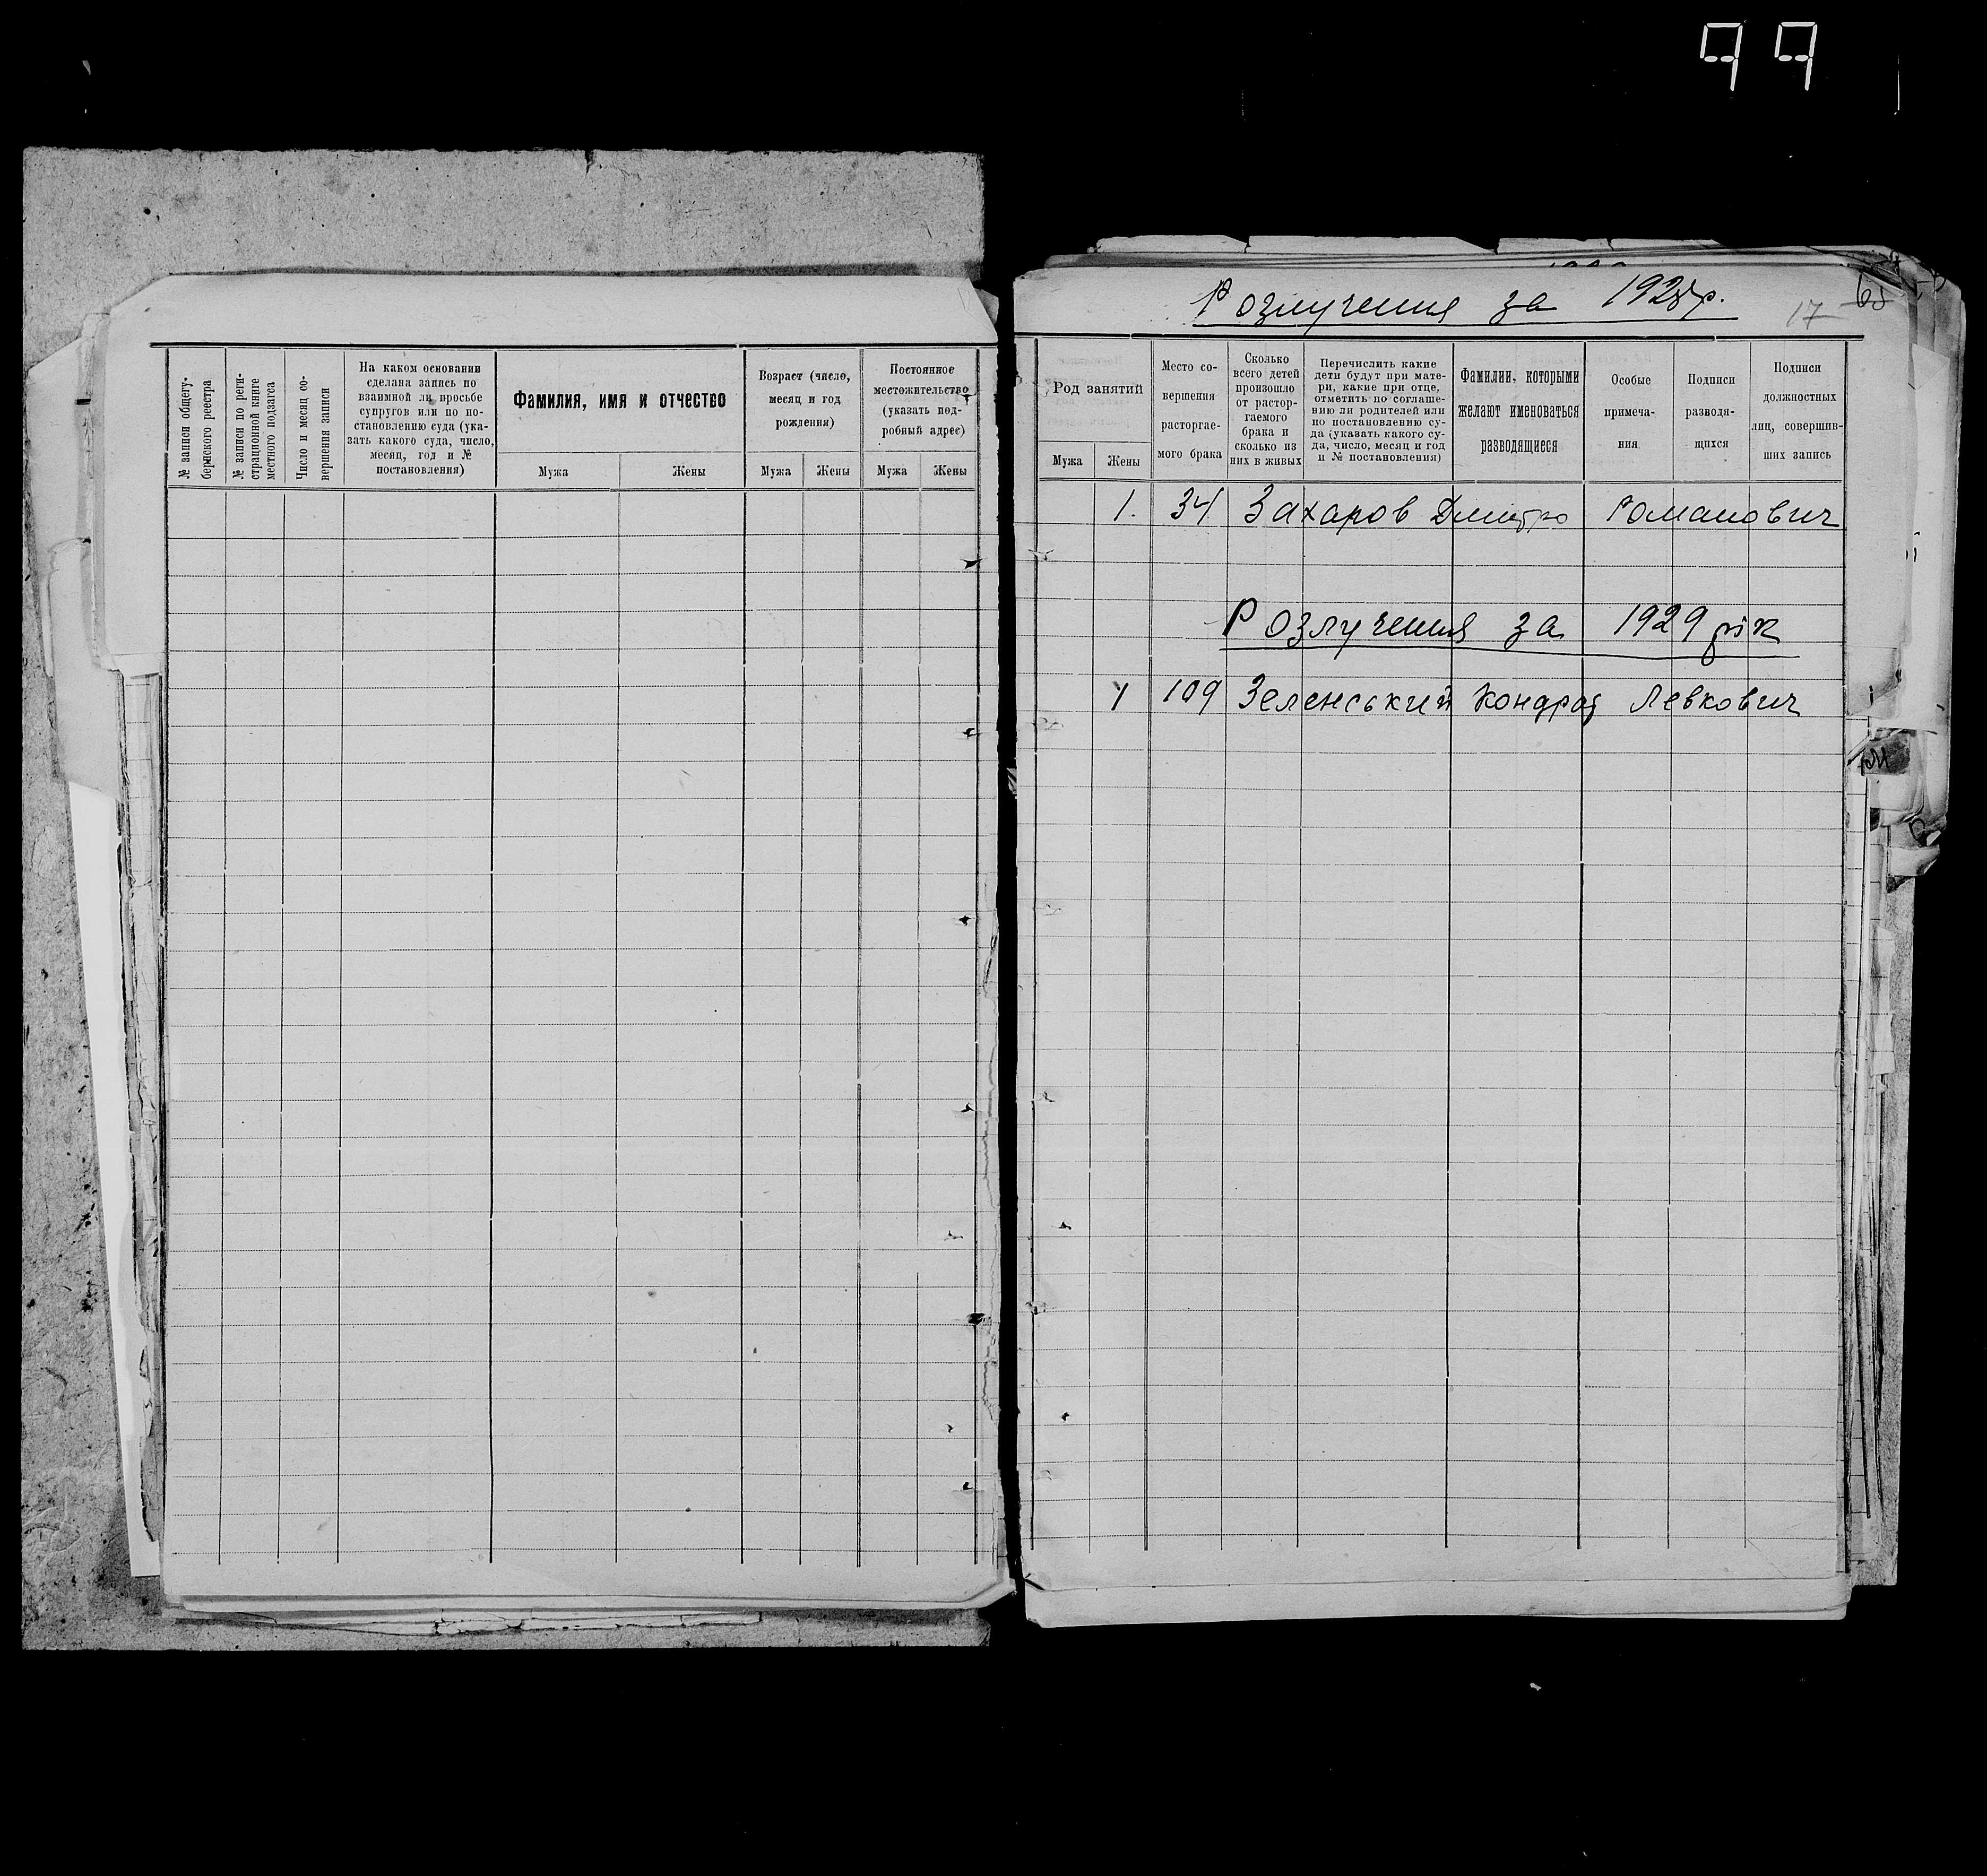 99
№ записи общегу-
бернского реестра
№ записи по реги-
страционной книге
местного подзагса
Число и месяц со-
вершения записи
На каком основании
сделана запись по
взаимной ли просьбе
супругов или по по-
становлению суда (ука-
зать какого суда, число,
месяц, год и №
постановления)
Фамилия, имя и отчество
Мужа
Жены
Возраст (число,
месяц и год
рождения)
Мужа
Жены
Постоянное
местожительство
(указать под-
робный адрес)
Мужа
Жены
Розлучення за 1928р.
17
Род занятий
Мужа
Жены
Место со-
вершения
расторгае-
мого брака
Сколько
всего детей
произошло
от растор-
гаемого
брака и
сколько из
них в живых
Перечислить какие
дети будут при мате-
ри, какие при отце,
отметить по соглаше-
нию ли родителей или
по постановлению су-
да (указать какого су-
да, число, месяц и год
и № постановления)
Фамилии, которыми
желают именоваться
разводящиеся
Особые
примеча-
ния
Подписи
разводя-
щихся
Подписи
должностных
лиц, совершив-
ших запись
1. 34 Захаров Дмитро Романович
Розлучення за 1929 рік
1 109 Зеленський Кондрат Левкович